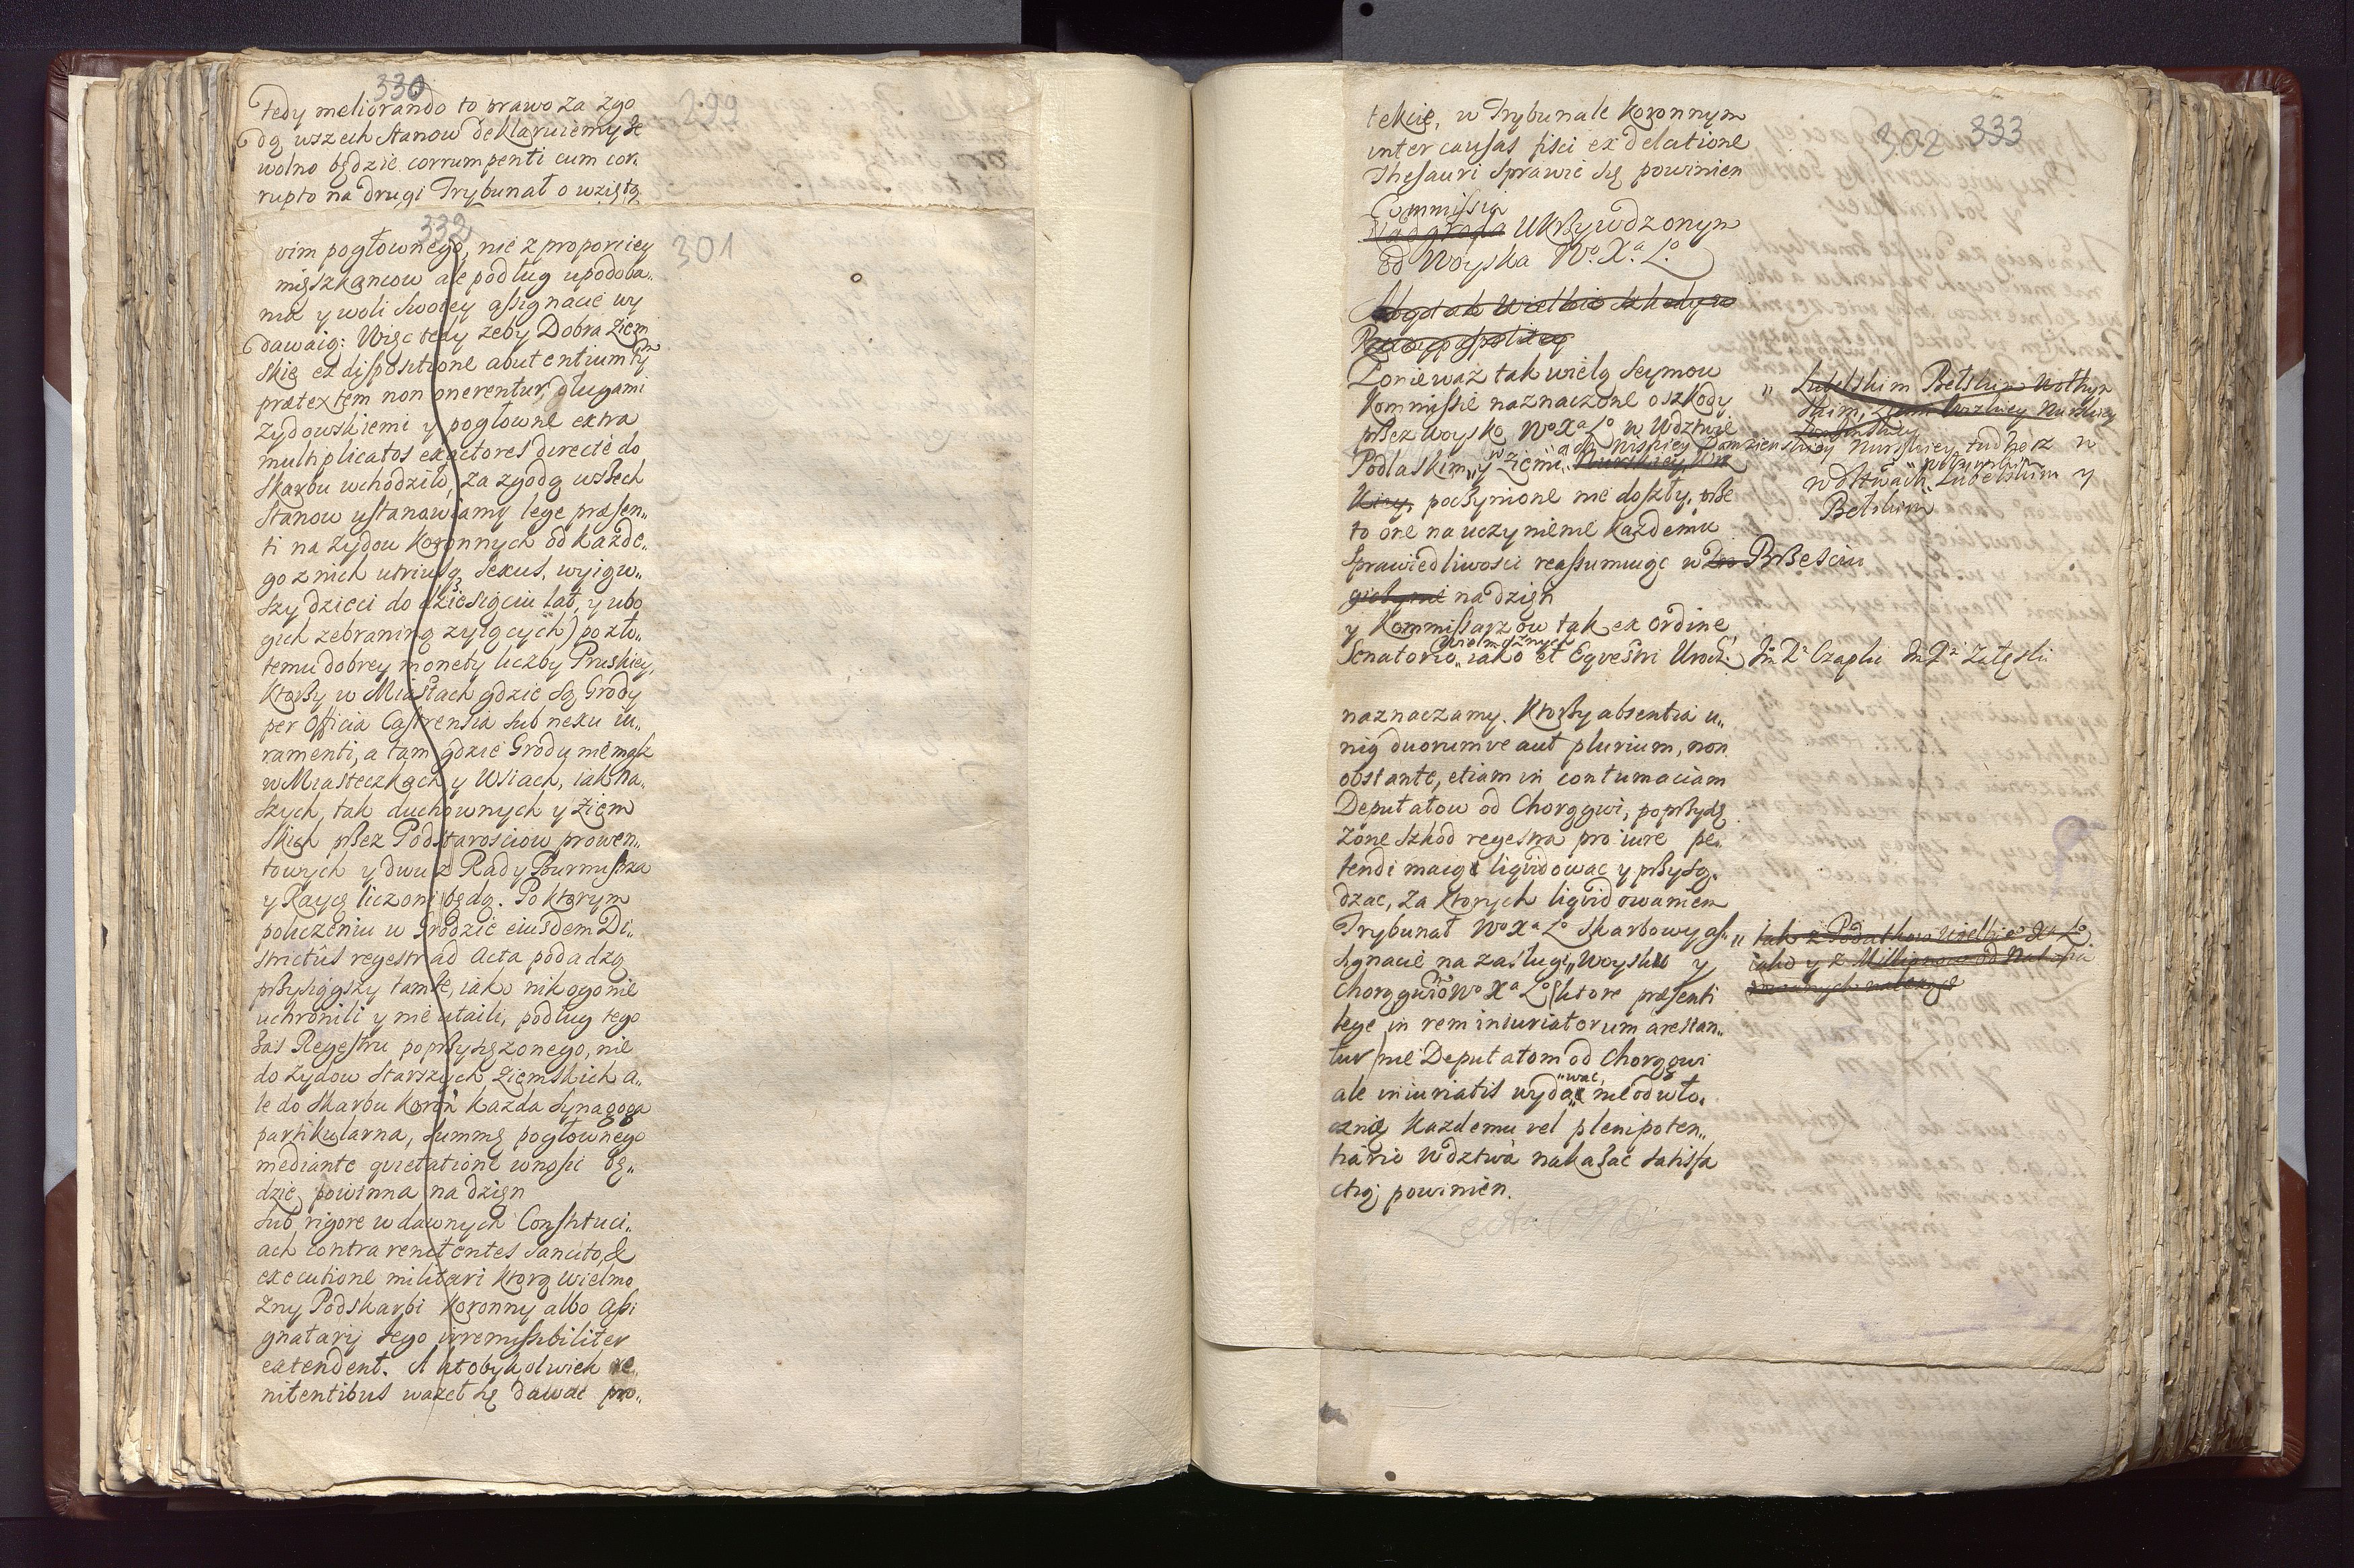 330
299
tedy meliorando to prawo za zgo
dą wszech Stanow deklaruiemy że
wolno będzie corrumpenti cum cor.
rupto na drugi Trybunał o wziętą
332
301
rim pogłownego, nie z proporciey
mięszkancow ale podług upodoba„
nia y woli swoiey assignacie wy
dawaią: Więc tedy zeby Dobra Ziem
skie ex dispositione abutentium hy
prætextem non onerentur, długami
Zydowskiemi y pogłowne extra
multiplicatos exactores directè do
Skarbu wchodziło, za zgodą wszech
Stanow ustanowiamy lege præsen„
ti na Zydow Koronnych od kazde„
go z nich utriusq sexus, wyiąw„
szy dzieci do dziesięciu lat, y ubo
gich zebraniną zyiących) po zło„
temu dobrey monety liczby Pruskiey,
ktorzy w Miastach gdzie są Grody
per Officia Castrensia sub nexu iu„
ramenti, a tam gdzie Grodu nie masz
w Miasteczkach y Wsiach, iak na„
szych, tak duchownych y Ziem
skich przez Podstarosciow prowen„
towych y dwu z Rady Burmistrza
y Raycę liczoni będą. Po ktorym
policzeniu w Grodzie eiusdem Di„
strictûs regestr ad Acta podadzą
przysiągszy tamże, iako nikogo nie
uchronili y nie utaili, podług tego
zas Regestru poprzysięzonego, nie
do Zydow Starszych Ziemskich a„
le do Skarbu Koron kazda Synagoga
partikularna, summę pogłownego
mediante quietatione wnosić bę„
dzie powinna na dzien
sub rigore w dawnych Constituci„
ach contra renitentes sancito, &
executione militari ktorą Wielmo
zny Podskarbi Koronny albo assi
gnatarij iego irremissibiliter
extendent. A ktobykolwiek re
nitentibus wazeł się dawać pro„
302 333
tekcię, w Trybunale Koronnym
inter causas fisci ex delatione
Thesauri sprawić się powinien
Commissia
Nadgroda Ukrzywdzonym
od Woyska Wo. Xa. Lo.
Poniewaz tak wielą Seymow
Kommissie naznaczone o szkody
przez woysko Wo Xa Lo w Wdztwie
Podlaskim„ y w Ziemi Nurskiey
poczynione nie doszły, prze
to one na uczynienie kazdemu
sprawiedliwosci reassumuiąc w Brzesciu
na dzien
y Kommissarzow tak ex ordine
Wielmoznych
Senatorio„ iako et Equestri Urodz.
naznaczamy. Ktorzy absentiâ u„
nią duorumve aut plurium, non
obstante, etiam in contumaciam
Deputatow od Chorągwi, poprzysię
zone szkod regestra pro iure pe„
tendi maią liquidowac y przysą„
dzac, za ktorych liquidowaniem
Trybunał Wo Xa Lo Skarbowy as„
signacie na zasługi„ Woysku y
Chorągwiō Wo Xa Lo (ktore præsenti
lege in rem iniuriatorum arestan„
tur) nie Deputatom od Chorągwi
„wac„
ale iniuriatis wydać nieodwło„
cznie Kazdemu vel plenipoten„
tiario Wdztwa nakazać satisfa
ctią powinien.
„ Lubelskim Bełskim Wołhyn
skim, Ziemi
Nurskiey tudziesz w
Wdztwach Lubelskim y
Bełskim
Czaplic Załęski
„ tak z Podatkow Wielkiego Xa Lo
iako y z Millionow